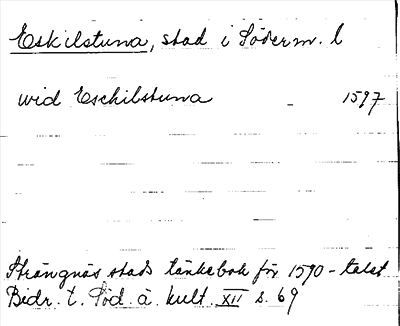 Eskilstuna, stad i Söderm. l
wid Eschilstuna - 1597
Strängnäs stads tänkebok för 1590-talet
Bidr. t. Söd. ä. kult. XII s. 69